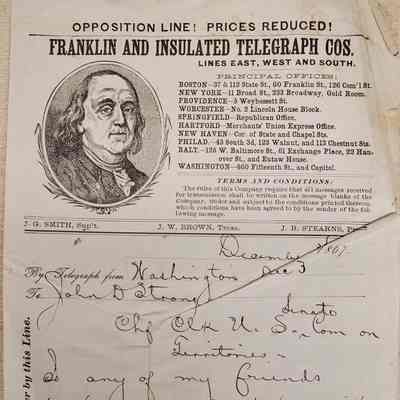 OPPOSITION LINE! PRICES REDUCED!
FRANKLIN AND INSULATED TELEGRAPH COS.
LINES EAST, WEST AND SOUTH.
PRINCIPAL OFFICES:
BOSTON—37 & 112 State St., 60 Franklin St., 126 Com'l St.
NEW YORK—11 Broad St., 233 Broadway, Gold Room.
PROVIDENCE—5 Weybossett St.
WORCESTER—No. 2 Lincoln House Block.
SPRINGFIELD—Republican Office.
HARTFORD—Merchants' Union Express Office.
NEW HAVEN—Cor. of State and Chapel Sts.
PHILAD.—43 South 3d, 123 Walnut, and 113 Chestnut Sts.
BALT.—128 W. Baltimore St., 61 Exchange Place, 22 Han-
over St., and Eutaw House.
WASHINGTON—460 Fifteenth St., and Capitol.
TERMS AND CONDITIONS:
The rules of this Company require that all messages received
for transmission shall be written on the message blanks of the
Company, under and subject to the conditions printed thereon,
which conditions have been agreed to by the sender of the fol-
lowing message.
J. G. SMITH, Sup't. J. W. BROWN, Treas. J. B. STEARNS,
December 3 1867
By Telegraph from Washington Dec 3
To John D Strong
Senate
Chf Clk U. S. Com on
Territories
Do any of my friends
er by this Line.